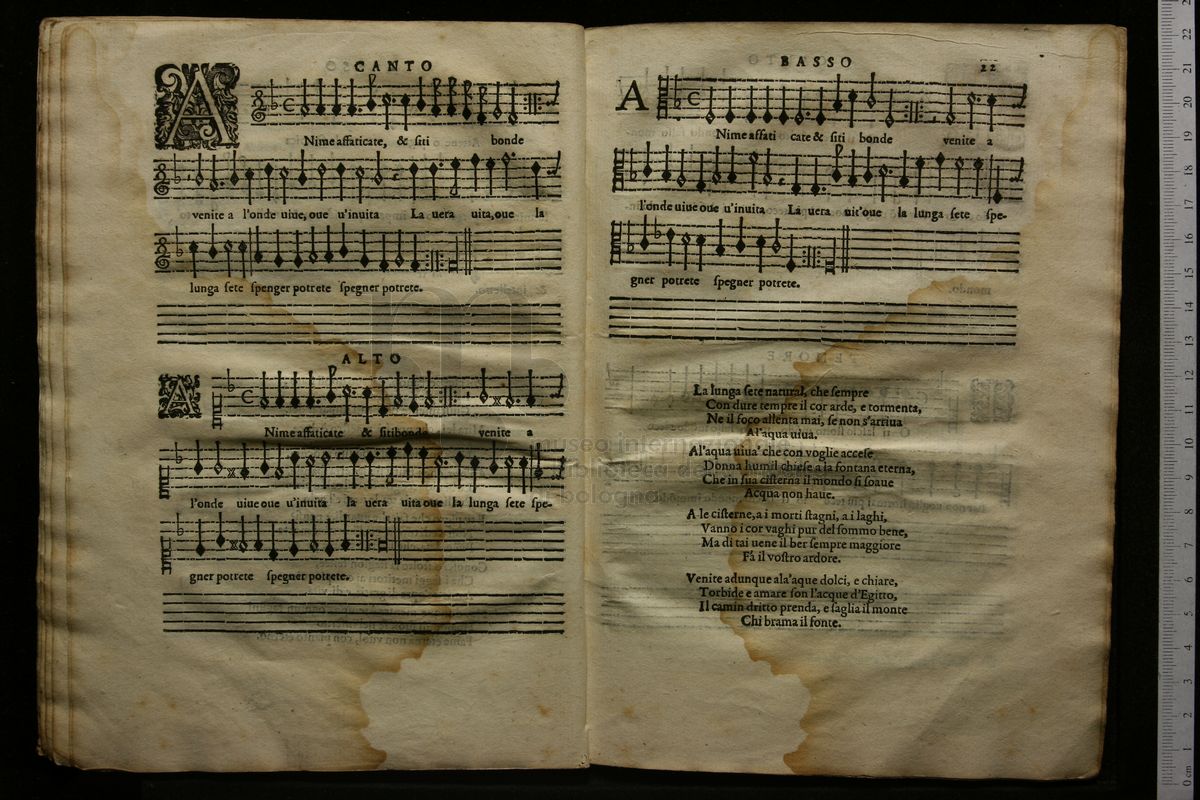 CANTO
A
Nime affaticate, & siti bonde
venite a l'onde uiue, oue u'inuita La uera uita, oue la
lunga sete spenger potrete spegner potrete.
ALTO
A
Nime affaticate & sitibonde venite a
l'onde uiue oue u'inuita la uera uita oue la lunga sete spe-
gner potrete spegner potrete.
BASSO 22
A
Nime affati cate & siti bonde venite a
l'onde uiue oue u'inuita La uera uit'oue la lunga sete spe-
gner potrete spegner potrete.
La lunga sete natural, che sempre
Con dure tempre il cor arde, e tormenta,
Ne il foco allenta mai, se non s'arriua
Al'aqua uiua.
Al'aqua uiua' che con voglie accese
Donna humil chiese a la fontana eterna,
Che in sua cisterna il mondo si soaue
Acqua non haue.
A le cisterne, a i morti stagni, a i laghi,
Vanno i cor vaghi pur del sommo bene,
Ma di tai uene il ber sempre maggiore
Fà il vostro ardore.
Venite adunque ala'aque dolci, e chiare,
Torbide e amare son l'acque d'Egitto,
Il camin dritto prenda, e saglia il monte
Chi brama il fonte.
museo internazionale
biblioteca de
bologna
0 cm 1 2 3 4 5 6 7 8 9 10 11 12 13 14 15 16 17 18 19 20 21 22